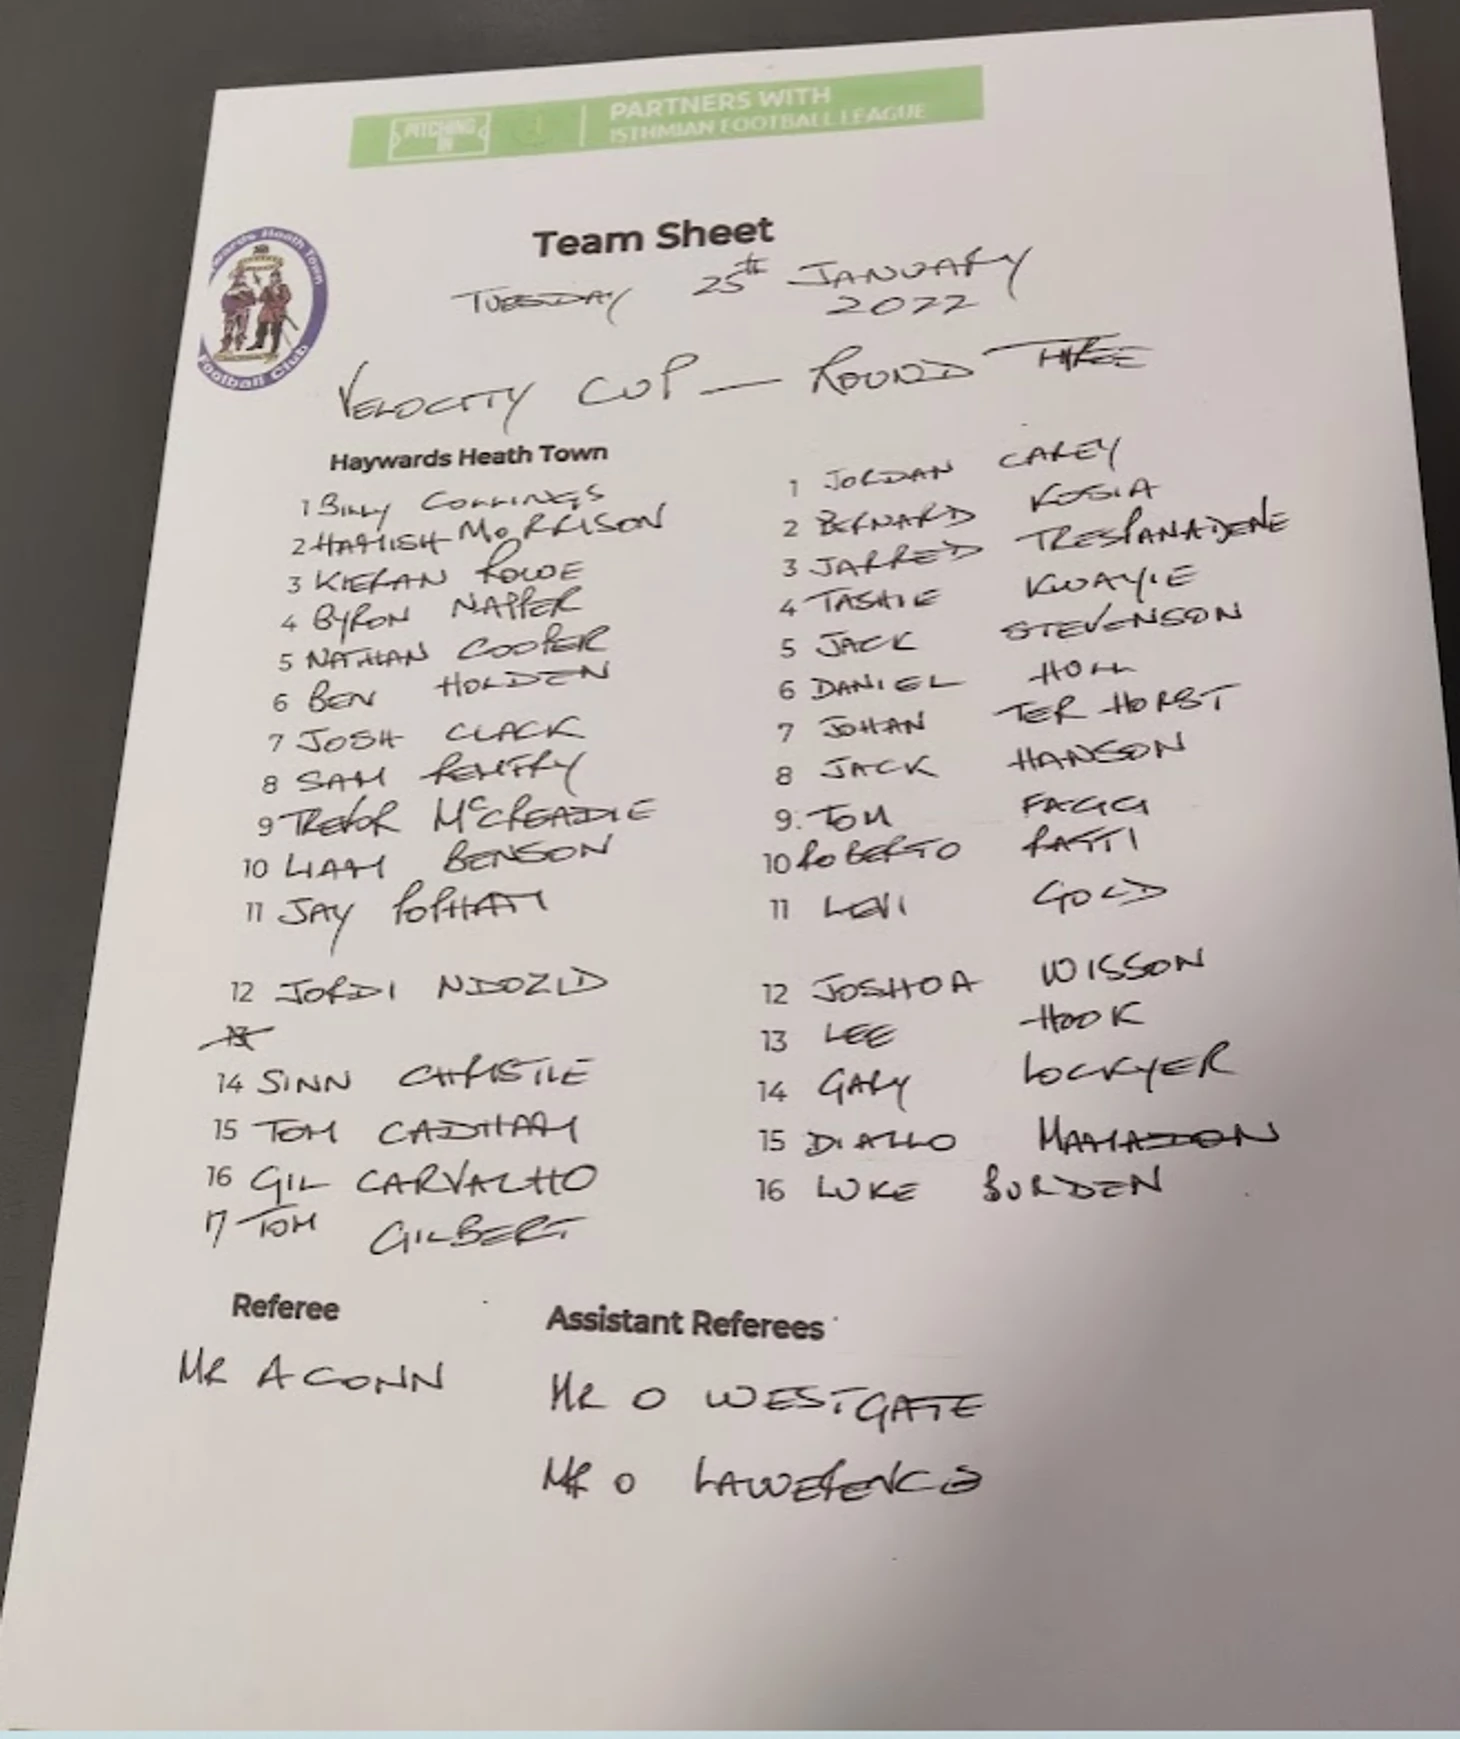 PITCHING
IN
PARTNERS WITH
ISTHMIAN FOOTBALL LEAGUE
Haywards Heath Town
Football Club
Team Sheet
TUESDAY 25th JANUARY
2022
VELOCITY CUP — ROUND THREE
Haywards Heath Town
1 BILLY COLLINGS
2 HAMISH MORRISON
3 KIERAN ROWE
4 BYRON NAPPER
5 NATHAN COOPER
6 BEN HOLDEN
7 JOSH CLACK
8 SAM REMFRY
9 TREVOR McCREADIE
10 LIAM BENSON
11 JAY POPHAM
12 JORDI NDOZID
13
14 SINN CHRISTIE
15 TOM CADHAM
16 GIL CARVALHO
17 TOM GILBERT
1 JORDAN CAREY
2 BERNARD KOSIA
3 JARRED TRESPANADENE
4 TASHIE KWAYIE
5 JACK STEVENSON
6 DANIEL HOLL
7 JOHAN TER HORST
8 JACK HANSON
9. TOM FAGG
10 ROBERTO RATTI
11 LEVI GOLD
12 JOSHOA WISSON
13 LEE HOOK
14 GARY LOCKYER
15 DIALLO MAMADON
16 LUKE BURDEN
Referee
MR A CONN
Assistant Referees
MR O WESTGATE
MR O LAWERENCE